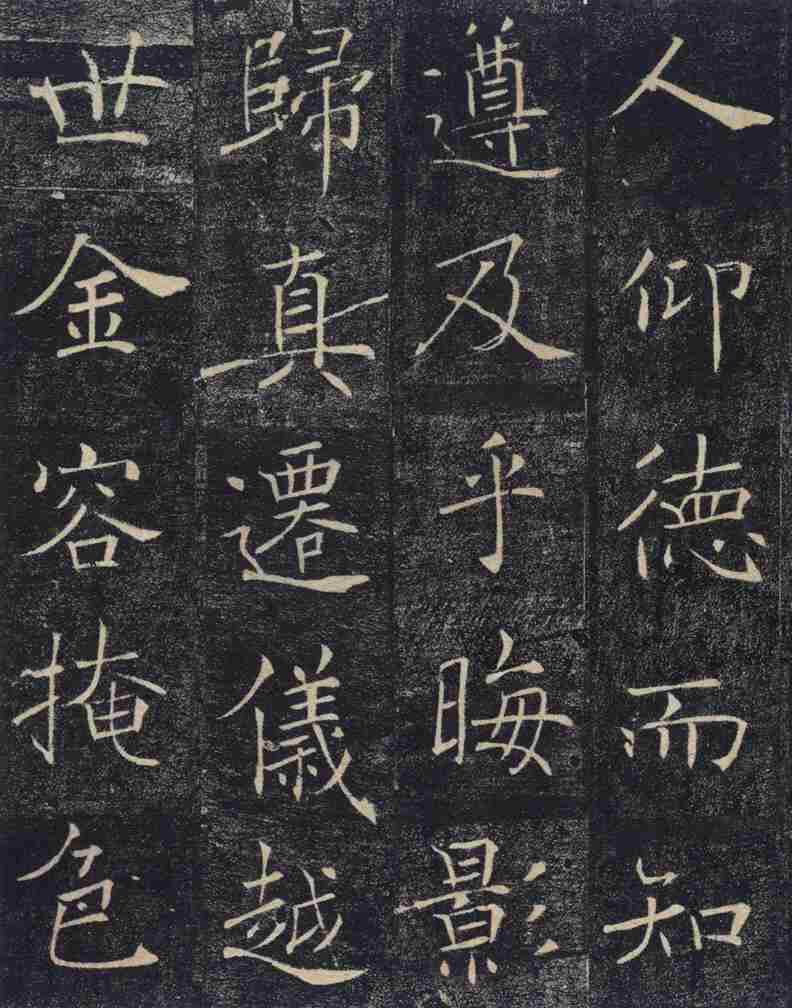 人仰德而知
遵及乎晦影
歸真遷儀越
世金容掩色